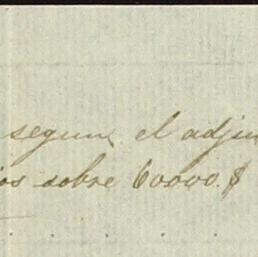 segun el adjun
os sobre 60000.$